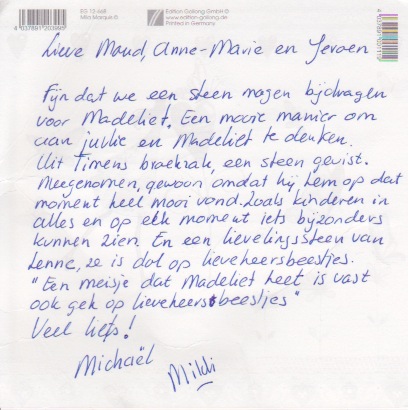 4037891203995
EG 12 668
Mila Marquis ©
Edition Gollong GmbH ©
www.edition-gollong.de
Printed in Germany
Lieve Maud, Anne-Marie en Jeroen
Fijn dat we een steen mogen bijdragen
voor Madelief. Een mooie manier om
aan jullie en Madelief te denken.
Uit Timens broekzak, een steen gevist.
Meegenomen, gewoon omdat hij hem op dat
moment heel mooi vond. Zoals kinderen in
alles en op elk moment iets bijzonders
kunnen zien. En een lievelingssteen van
Lenne, ze is dol op lieveheersbeestjes.
"Een meisje dat Madelief heet is vast
ook gek op lieveheersbeestjes"
Veel liefs!
Michaël
Mildi